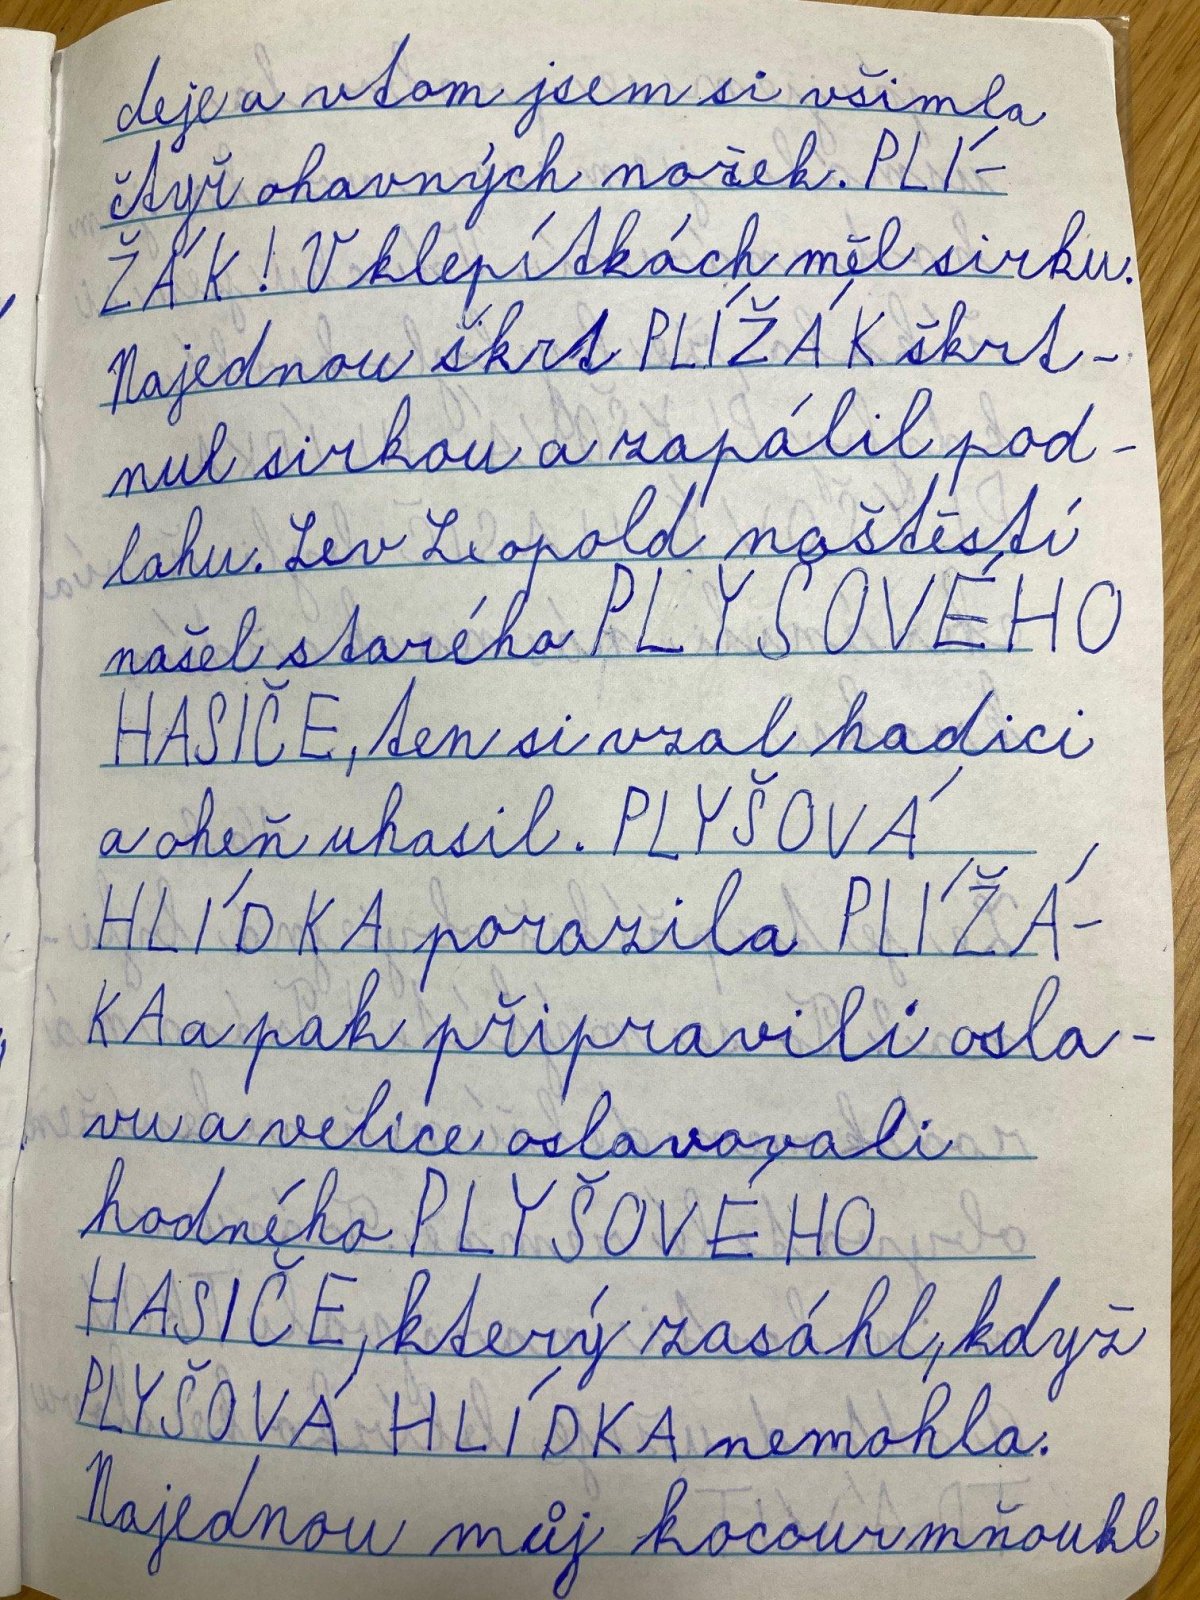 deje a vtom jsem si všimla
čtyř ohavných nožek. PLÍ-
ŽÁK! V klepítkách měl sirku.
Najednou škrt PLÍŽÁK škrt-
nul sirkou a zapálil pod-
lahu. Lev Leopold naštěstí
našel starého PLYŠOVÉHO
HASIČE, ten si vzal hadici
a oheň uhasil. PLYŠOVÁ
HLÍDKA porazila PLÍŽÁ-
KA a pak připravili osla-
vu a velice oslavovali
hodného PLYŠOVÉHO
HASIČE, který zasáhl, když
PLYŠOVÁ HLÍDKA nemohla.
Najednou můj kocour mňoukl